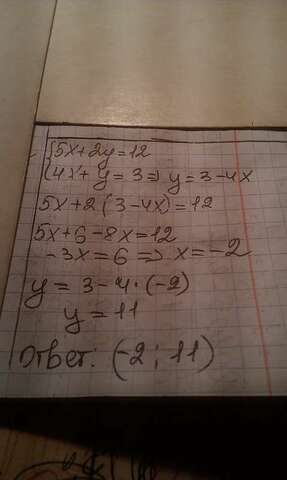 {5x+2y=12
4x+y=3⇒y=3-4x
5x+2(3-4x)=12
5x+6-8x=12
-3x=6⇒x=-2
y=3-4·(-2)
y=11
Ответ: (-2; 11)